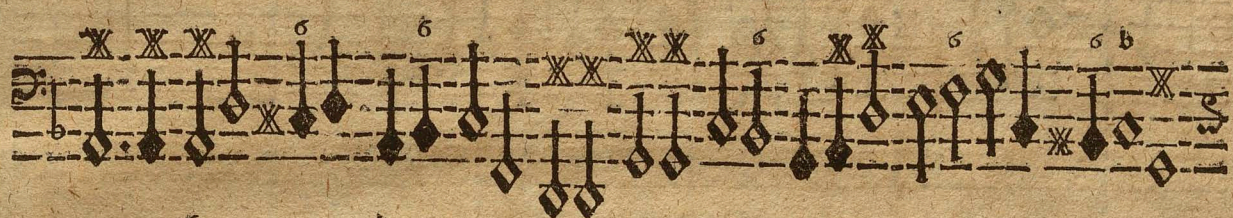 6 6 6 6 6 b